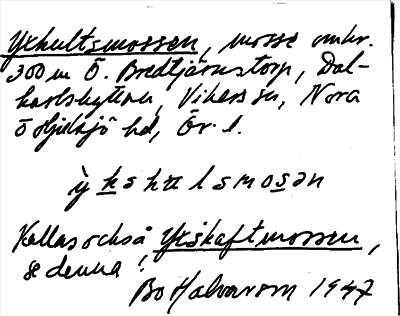 Yxhultsmossen, mosse omkr.
300 m Ö. Bredtjärnstorp, Dal-
karlshyttan, Vikers sn, Nora
o Hjulsjö hd, Ör. l.
ỳ k s h ʉ l s m o s ə n
Kallas också Yxskaftmossen,
se denna!
Bo Halvarson 1947